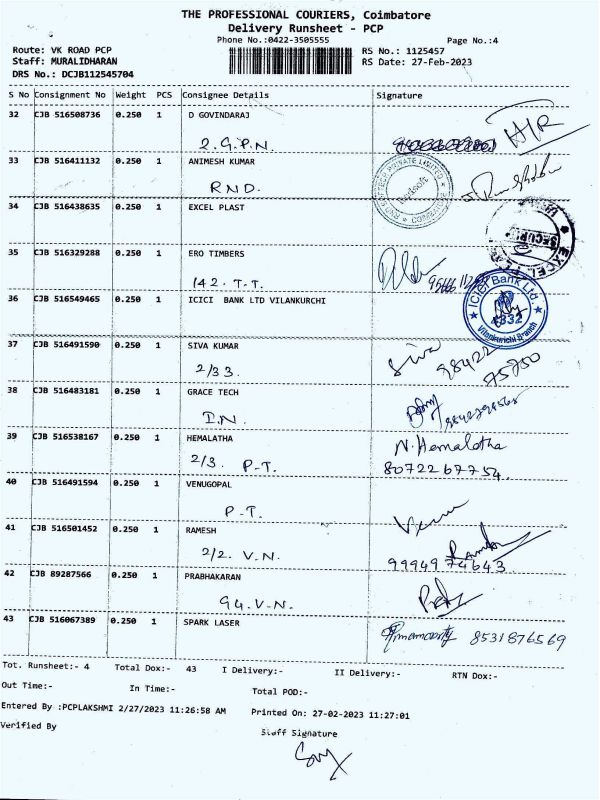 THE PROFESSIONAL COURIERS, Coimbatore
Delivery Runsheet - PCP
Phone No.:0422-3505555
Page No.:4
Route: VK ROAD PCP
RS No.: 1125457
Staff: MURALIDHARAN
RS Date: 27-Feb-2023
DRS No.: DCJB112545704
S No Consignment No Weight PCS Consignee Details Signature
32 CJB 516508736 0.250 1 D GOVINDARAJ
2.G.P.N.
33 CJB 516411132 0.250 1 ANIMESH KUMAR
RND.
34 CJB 516438635 0.250 1 EXCEL PLAST
35 CJB 516329288 0.250 1 ERO TIMBERS
142. T.T.
36 CJB 516549465 0.250 1 ICICI BANK LTD VILANKURCHI
ICICI Bank Ltd.
Vilankurichi Branch
37 CJB 516491590 0.250 1 SIVA KUMAR
2/33. Siva 98422
75750
38 CJB 516483181 0.250 1 GRACE TECH
I.N.
39 CJB 516538167 0.250 1 HEMALATHA N.Hemalatha
2/3. P-T. 8072267754
40 CJB 516491594 0.250 1 VENUGOPAL
P-T.
41 CJB 516501452 0.250 1 RAMESH
2/2. V.N. 9994974643
42 CJB 89287566 0.250 1 PRABHAKARAN
94.V.N.
43 CJB 516067389 0.250 1 SPARK LASER
8531876569
Tot. Runsheet:- 4 Total Dox:- 43 I Delivery:- II Delivery:- RTN Dox:-
Out Time:- In Time:- Total POD:-
Entered By :PCPLAKSHMI 2/27/2023 11:26:58 AM Printed On: 27-02-2023 11:27:01
Verified By Staff Signature